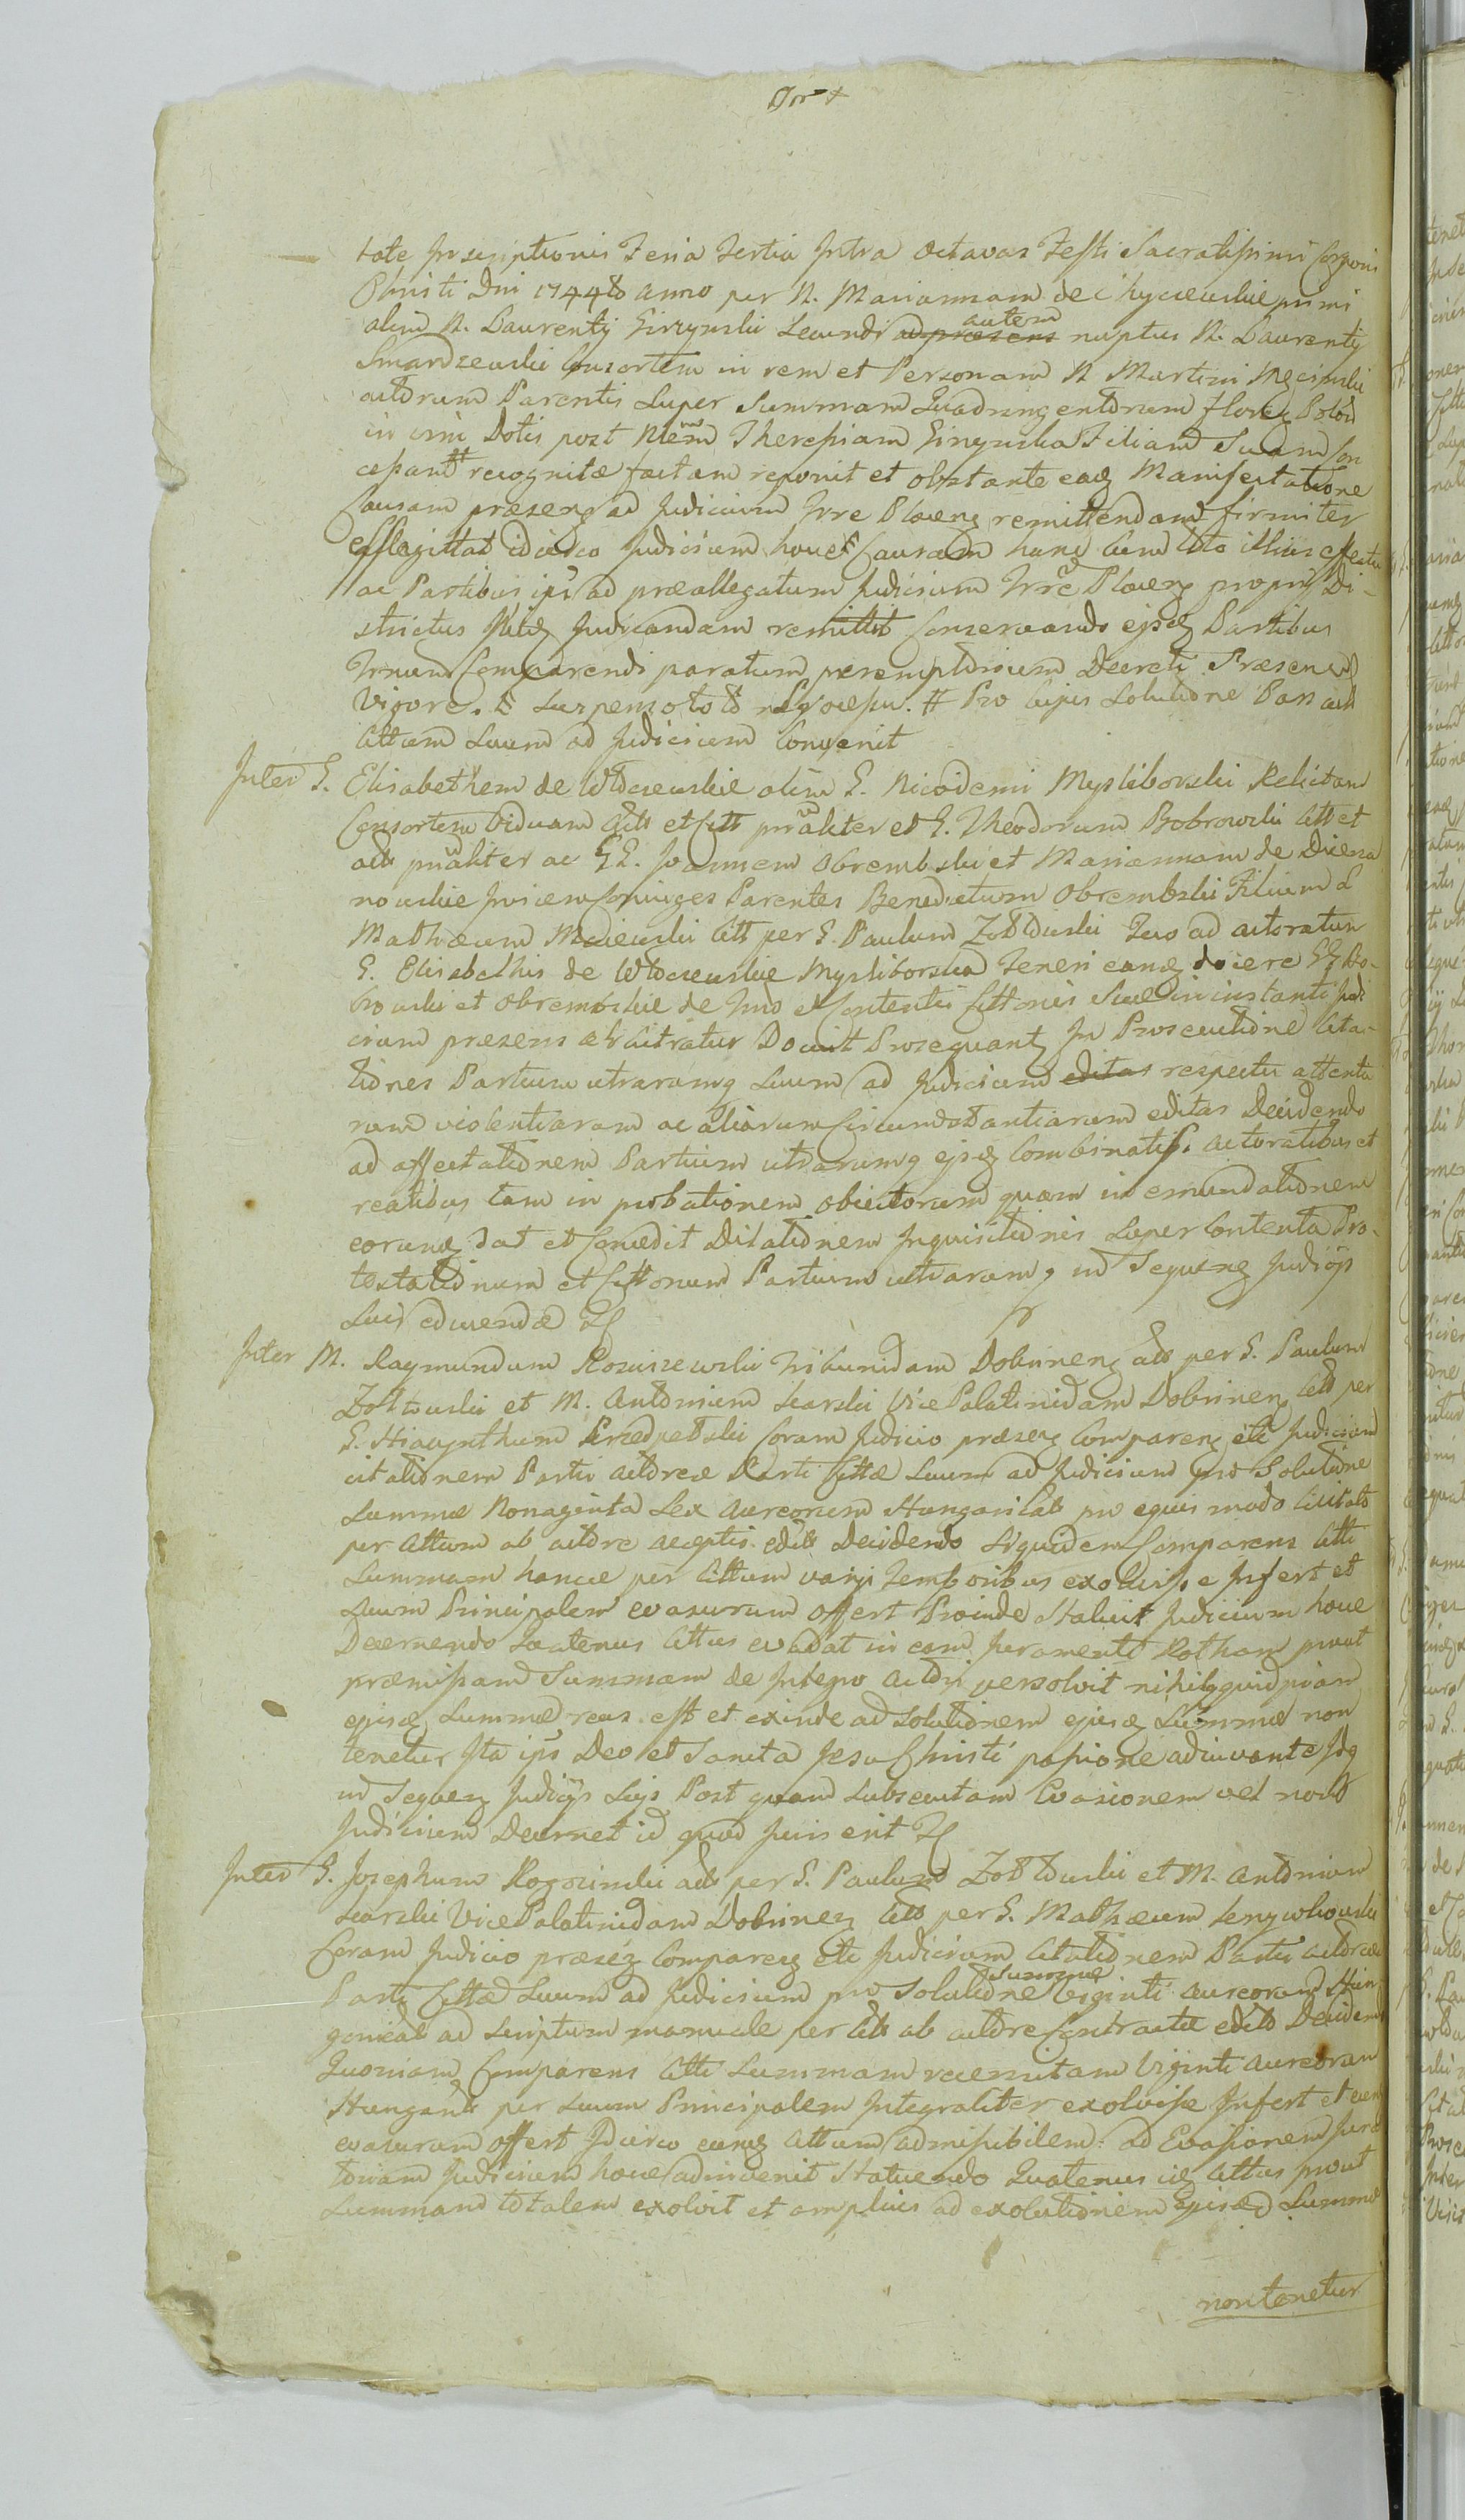 tate Inscriptionis Feria Tertia Intra Octavas Festi Sacratissimi Corporis
Christi Dni 1744to Anno per N. Mariannam de Chyczewskie primi
olim N. Laurentij Girzynski Secundi ad præsens autem nuptus N. Laurentij
Smardzewski Consortem in rem et Personam N Martini
actorum Parentis Super Summam Quadringentorum floren Polon
in vim Dotis post Nlem Theressiam Girzynska Filiam Suam
recognitæ factam reponit et obstante eaq Manifestatione
Causam præsenq ad Judicium Trre Plocenq remittendam firmiter
efflagittat idcirco Judicium hocce Causam hanc cum toto illius effectu
ac Partibus ips ad præallegatum Judicium Trre Plocenq proprij Di-
strictus Judicandam remittit Conservando ejsdq Partibus
Trnum Comparendi paratum peremptorium Decreti Præsentis
Vigore. # Pro cujus Solutione Pars act
Cittum Suum ad Judicium Convenit
Inter G. Elisabetham de Wtoczewskie olim G. Nicodemi Mysliborski Relictam
Consortem Viduam Actr et Citt prnaliter et G. Theodorum Bobrowski Citt et
act prnaliter ac GG. Joannem Obrembski et Mariannam de
nowskie Invicem Conjuges Parentes Benedictum Obrembski Filium &
Mathæum Maciewski Citt per G. Paulum Zottowski Quo ad actoratum
G. Elisabethis de Wtoczewskie Mysliborska Teneri eamq docere GG Bo-
browski et Obrembskie de Trno et Contentis Cittonis Suæ in instanti Judi
cium præsens arbitratur Docuit Prosequantq In Prosecutione Cita-
tiones Partium utrarumq Suum ad Judicium editas respectu attenta
rum violentiarum ac aliarum Circumstantiarum editas Decidendo
ad affectationem Partium utrarumq ejsdq Combinatis. actoratibus et
reatibus tam in probationem objectorum quam in emundationem
eorumq dat et Concedit Dilationem Inquisitionis Super Contenta Pro-
testationum et Cittonum Partium utrarumq in Sequenq Judicijs
Suis educendæ
Inter M. Raymundum Rosciszewski Tribunidam Dobrinenq act per G. Paulum
Zottowski et M. Antonium Skarski Vice Palatinidam Dobrinenq Citt per
G. Hiacynthum Coram Judicio præsenq Comparenq etc Judicium
citationem Partis actoreæ Parti Cittæ Suum ad Judicium pro Solutione
Summæ Nonaginta Sex Aureorum Hungarical pro equis modo
per Cittum ab actore acceptis edit Decidendo Siquidem Comparens Citti
Summam hancce per Cittum varijs Temporibus exolvisse Infert et
Suum Principalem evasurum offert Proinde Statuit Judicium hocce
Decernendo Quatenus Cittus evadat in eam Juramenti Rotham prout
præmissam Summam de Integro Actori persolvit nihilqquidpiam
ejusdq Summæ reus est et exinde ad Solutionem ejusdq Summæ non
tenetur Ita ips Deo et Sancta Jesu Christi passione adiuvante Idq
in Sequenq Judicijs Suis Post quam Subsecutam Evasionem vel non
Judicium Decernet id quod Juris erit
Inter G. Josephum Rogozinski act per G. Paulum Zottowski et M. Antonium
Skarski Vice Palatinidam Dobrinenq Citt per G. Mathæum
Coram Judicio præsenq Comparenq etc Judicium Citationem Partis actoreæ
Parti Cittæ Suum ad Judicium pro Solutione Summæ Viginti aureorum Hun
garical ad Scriptum manuale per Citt ab actore Contractæ edit Decidendo
Quoniam Comparens Citti Summam recensitam Viginti aureorum
Hungarical per Suum Principalem Integraliter exolvisse Infert et eum
evasurum offert Idcirco eumq Cittum admissibilem ad Evasionem Jura
toriam Judicium hocce adinvenit Statuendo Quatenus idq Cittus prout
Summam totalem exolvit et amplius ad exolutionem Ejusd Summæ
non tenetur